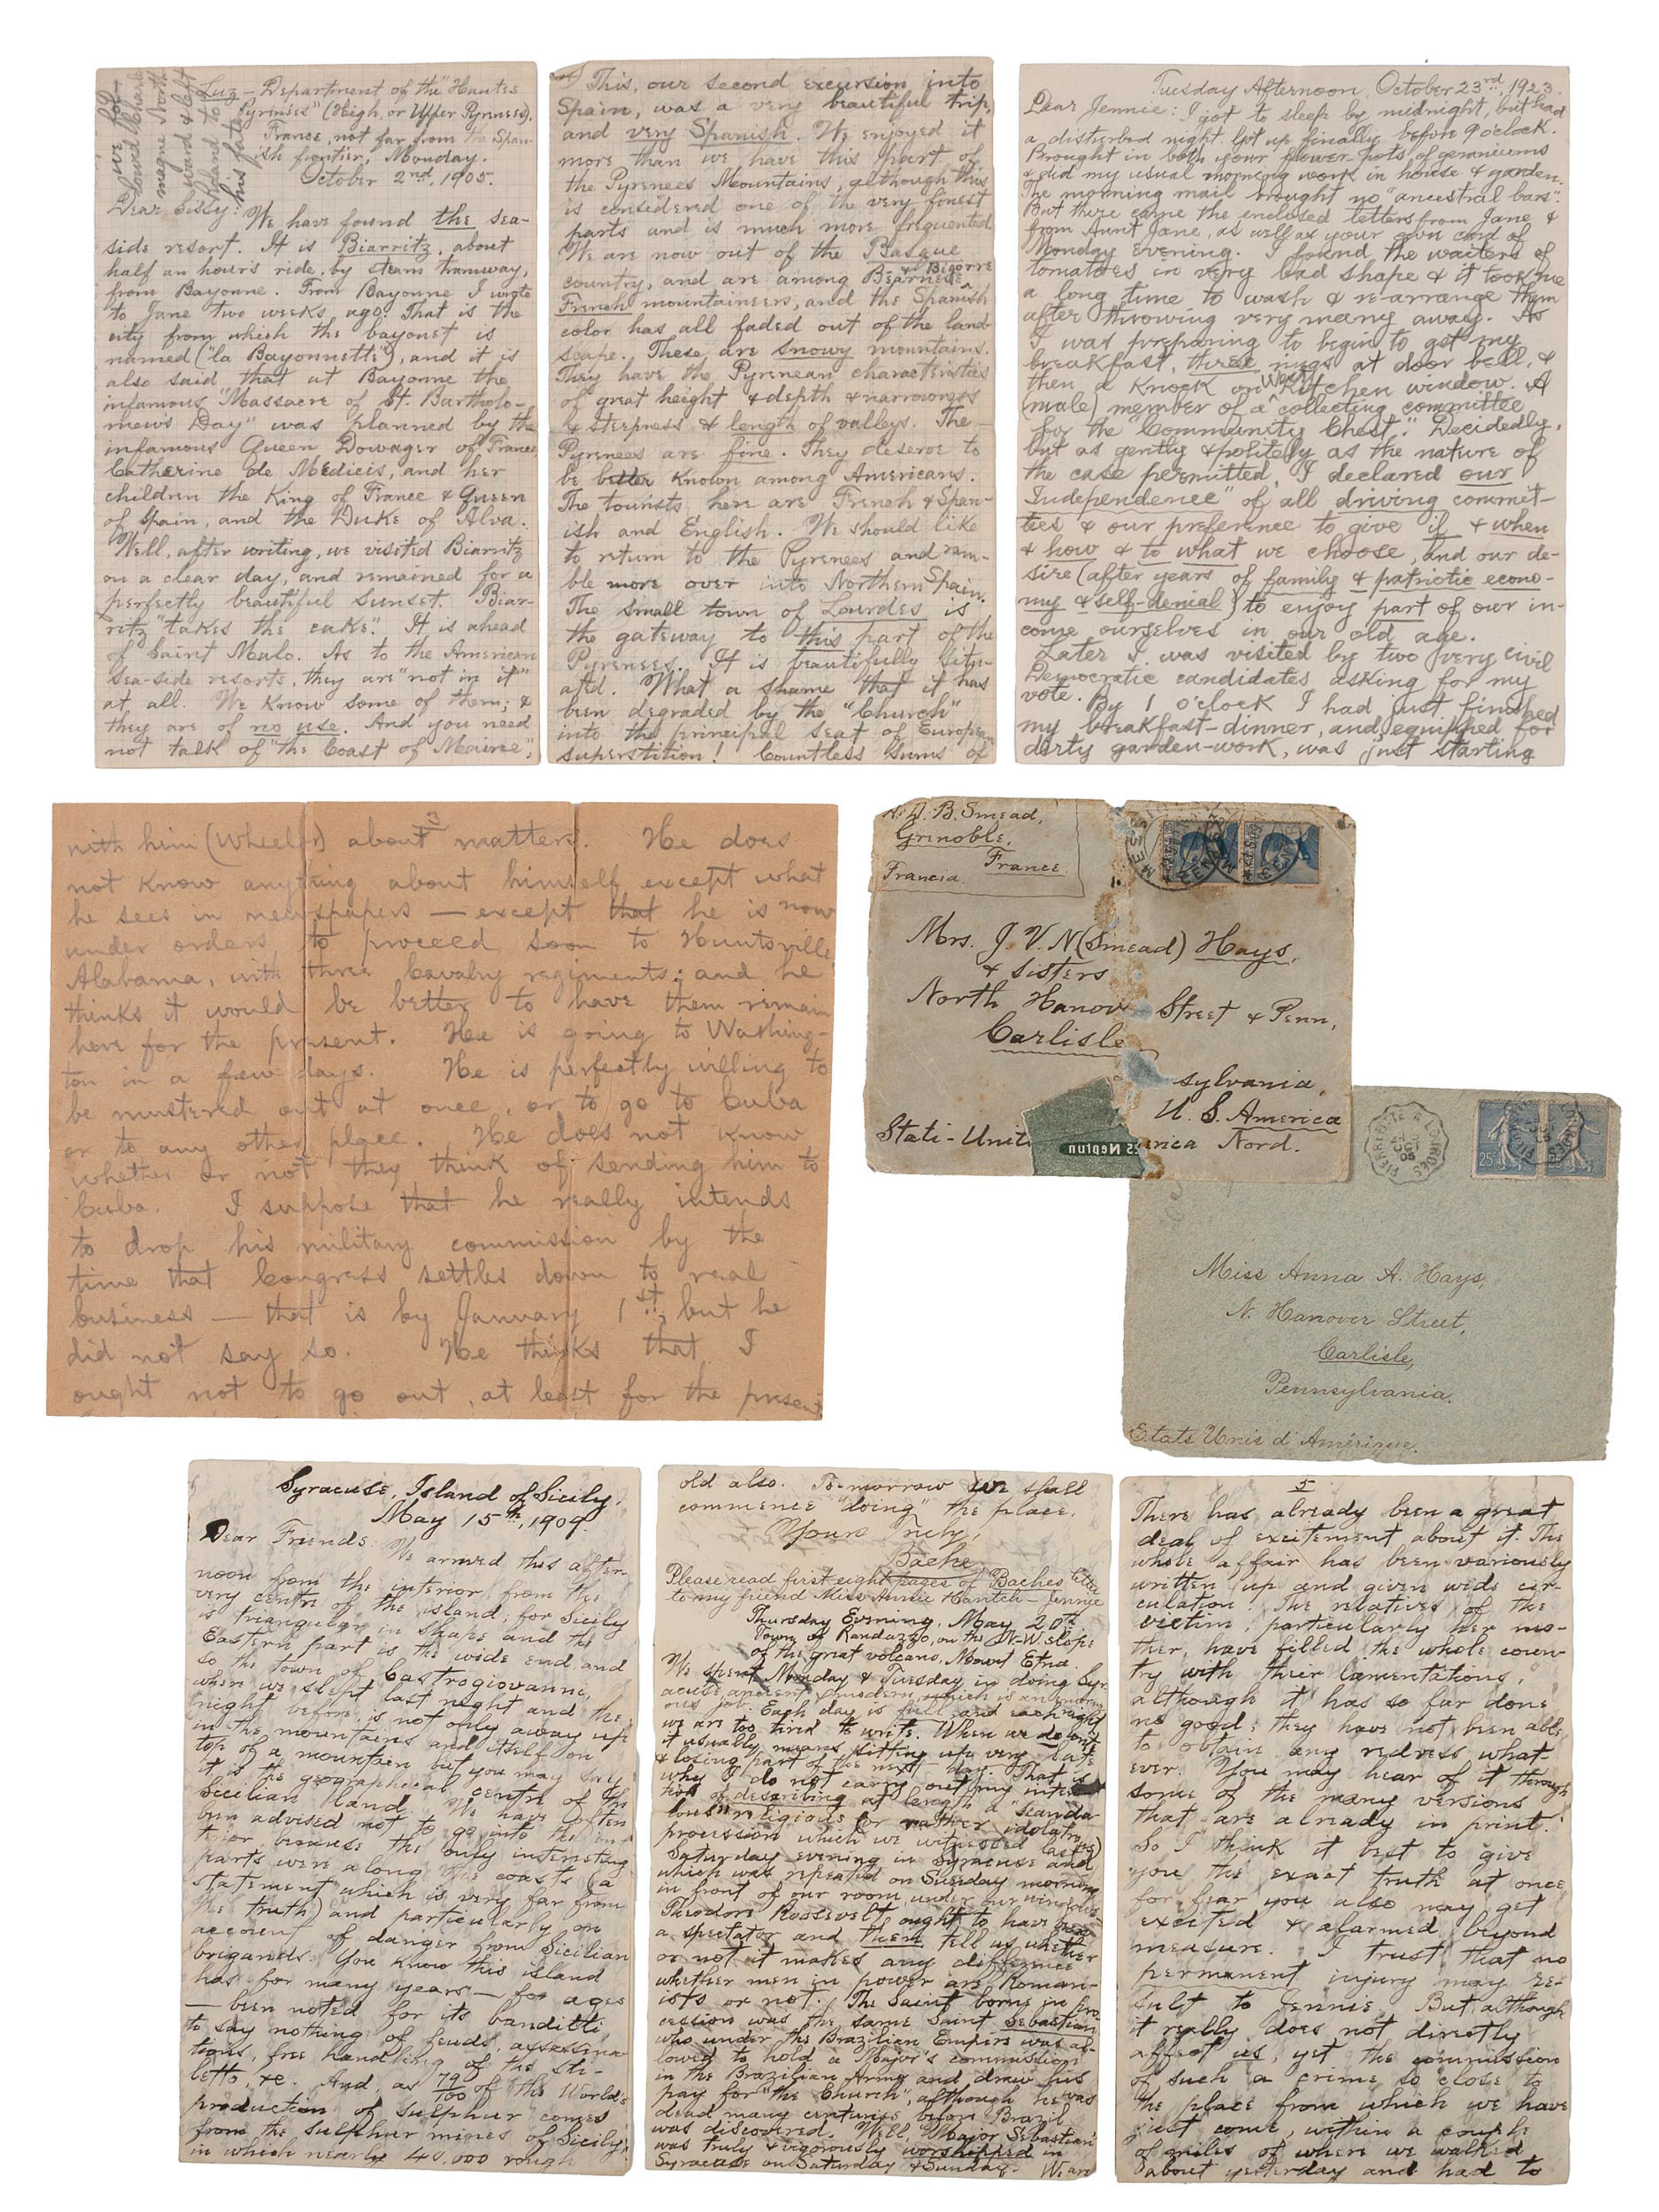 Luz – Department of the "Hautes
Pyrenees" (High, or Upper Pyrenees),
France, not far from the Span-
ish frontier, Monday.
October 2nd, 1905.
Dear Sissy: We have found the sea-
side resort. It is Biarritz, about
half an hour's ride, by steam tramway,
from Bayonne. From Bayonne I wrote
to Jane two weeks ago. That is the
city from which the bayonet is
named ("la Bayonnette"), and it is
also said that at Bayonne the
infamous "Massacre of St. Bartholo-
mews Day" was planned by the
infamous Queen Dowager of France
Catherine de Medicis, and her
children the King of France & Queen
of Spain, and the Duke of Alva.
Well, after writing, we visited Biarritz
on a clear day, and remained for a
perfectly beautiful sunset. Biar-
ritz "takes the cake". It is ahead
of Saint Malo. As to the American
sea-side resorts, they are "not in it"
at all. We know some of them; &
they are of no use. And you need
not talk of "the Coast of Maine",
This, our second excursion into
Spain, was a very beautiful trip,
and very Spanish. We enjoyed it
more than we have this part of
the Pyrenees Mountains, although this
is considered one of the very finest
parts and is much more frequented.
We are now out of the Basque
country, and are among Bearnese & Bigorre
French mountaineers, and the Spanish
color has all faded out of the land-
scape. These are snowy mountains.
They have the Pyrenean characteristics
of great height & depth & narrowness
& steepness & length of valleys. The
Pyrenees are fine. They deserve to
be better known among Americans.
The tourists here are French & Span-
ish and English. We should like
to return to the Pyrenees and ram-
ble more over into Northern Spain.
The small town of Lourdes is
the gateway to this part of the
Pyrenees. It is beautifully situ-
ated. What a shame that it has
been degraded by the "Church"
into the principal seat of European
superstition! Countless sums of
Tuesday Afternoon, October 23rd, 1923.
Dear Jennie: I got to sleep by midnight, but had
a disturbed night. Got up finally before 9 o'clock.
Brought in both your flower-pots of geraniums
& did my usual morning work in house & garden.
The morning mail brought no "ancestral bars".
But there came the enclosed letters from Jane &
from Aunt Jane, as well as your own card of
Monday evening. I found the waiters of
tomatoes in very bad shape & it took me
a long time to wash & re-arrange them
after throwing very many away. As
I was preparing to begin to get my
breakfast, three rings at door bell, &
then a knock on kitchen window. A
(male) member of a collecting committee
for the "Community Chest." Decidedly,
but as gently & politely as the nature of
the case permitted, I declared our
"Independence" of all driving commit-
tees & our preference to give if & when
& how & to what we choose, and our de-
sire (after years of family & patriotic econo-
my & self-denial) to enjoy part of our in-
come ourselves in our old age.
Later I was visited by two very civil
Democratic candidates asking for my
vote. By 1 o'clock I had just finished
my breakfast-dinner, and, equipped for
dirty garden-work, was just starting
3
with him (Wheeler) about matters. He does
not know anything about himself except what
he sees in newspapers – except that he is now
under orders to proceed soon to Huntsville,
Alabama, with three Cavalry regiments; and he
thinks it would be better to have them remain
here for the present. He is going to Washing-
ton in a few days. He is perfectly willing to
be mustered out at once, or to go to Cuba
or to any other place. He does not know
whether or not they think of sending him to
Cuba. I suppose that he really intends
to drop his military commission by the
time that Congress settles down to real
business – that is by January 1st, but he
did not say so. He thinks that I
ought not to go out, at least for the present
A. D. B. Smead,
Grenoble,
France
Francia.
Mrs. J. V. N (Smead) Hays,
& Sisters
North Hanov Street & Penn,
Carlisle
sylvania,
U. S. America
Stati-Unit rica Nord.
Neptun
25
Miss Anna A. Hays,
N. Hanover Street,
Carlisle,
Pennsylvania.
Etats Unis d'Amérique.
Syracuse, Island of Sicily,
May 15th, 1909.
Dear Friends: We arrived this after-
noon from the interior, from the
very centre of the island; for Sicily
is triangular in shape and the
Eastern part is the wide end, and
so the town of Castrogiovanni,
where we slept last night and the
night before, is not only away up
in the mountains and itself on
top of a mountain but you may say
it is the geographical centre of the
Sicilian land. We have often
been advised not to go into the in-
terior, because the only interesting
parts were along the coasts (a
statement which is very far from
the truth) and particularly on
account of danger from Sicilian
brigands. You know this island
has for many years – for ages
– been noted for its banditti
to say nothing of feuds, assassina-
tions, free handling of the sti-
letto, &c. And, as 79/100 of the World's
production of sulphur comes
from the sulphur mines of Sicily,
in which nearly 40,000 rough
old also. To-morrow we shall
commence "doing" the place.
Yours truly,
Bache
Please read first eight pages of Baches letter
to my friend Miss Annie Hantch – Jennie
Thursday Evening, May 20th
Town of Randazzo, on the N-W. slope
of the great volcano, Mount Etna.
We spent Monday & Tuesday in doing Syr-
acuse ancient & modern, which is an enorm-
ous job. Each day is full and each night
we are too tired to write. When we do write
it usually means sitting up very late
& losing part of the next day. That is
why I do not carry out my inten-
tion of describing at length a "scanda-
lous" religious (or rather idolatrous)
procession which we witnessed last
Saturday evening in Syracuse and
which was repeated on Sunday morning
in front of our room under our windows.
Theodore Roosevelt ought to have been
a spectator and then tell us whether
or not it makes any difference
whether men in power are Roman-
ists or not. The Saint borne in pro-
cession was the same Saint Sebastian
who under the Brazilian Empire was al-
lowed to hold a Major's commission
in the Brazilian Army and draw his
pay for "the Church", although he was
dead many centuries before Brazil
was discovered. Well, Major Sebastian
was truly & vigorously worshipped in
Syracuse on Saturday & Sunday. We are
5
There has already been a great
deal of excitement about it. The
whole affair has been variously
written up and given wide cir-
culation. The relatives of the
victim, particularly her mo-
ther, have filled the whole coun-
try with their lamentations,
although it has so far done
no good; they have not been able
to obtain any redress what-
ever. You may hear of it through
some of the many versions
that are already in print.
So I think it best to give
you the exact truth at once
for fear you also may get
excited & alarmed beyond
measure. I trust that no
permanent injury may re-
sult to Jennie. But although
it really does not directly
affect us, yet the commission
of such a crime so close to
the place from which we have
just come, within a couple
of miles of where we walked
about yesterday and had to